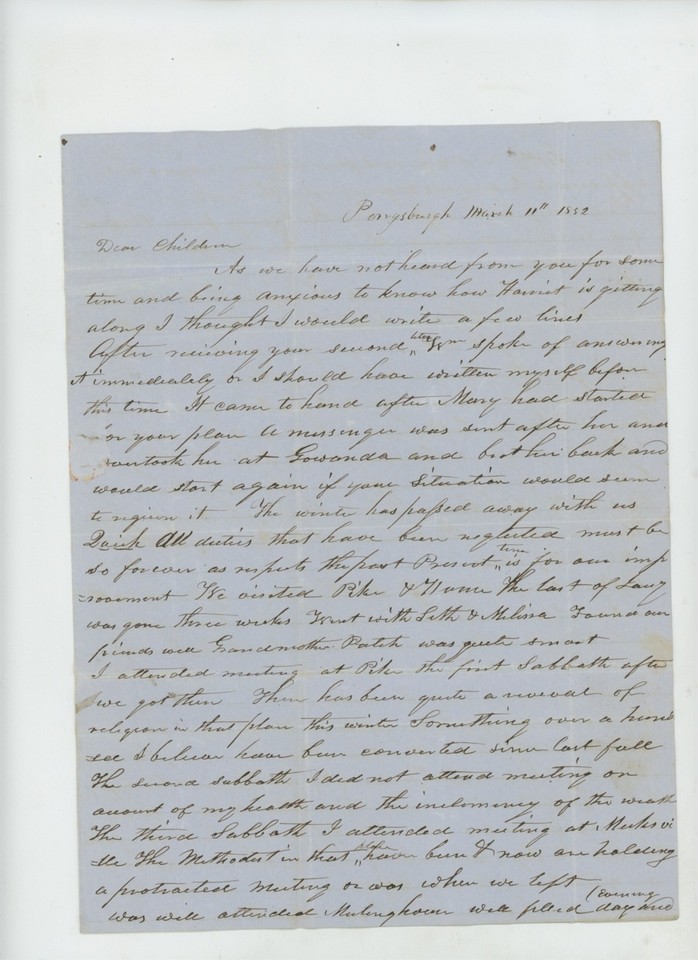 Perrysburgh March 11th 1852
Dear Children
As we have not heard from you for some
time and being anxious to know how Harriet is gitting
along I thought I would write a few lines
After reciving your second letter Wm spoke of answering
it immediately or I should have written myself before
this time It came to hand after Mary had started
for your place A messenger was sent after her and
overtook her at Gowanda and brot her back and
would start again if your situation would seem
to reguire it. The winter has passed away with us
Quick All duties that have been neglected must be
so forever as respects the past Present time is for our imp
=rovement We visited Pike & Hume The last of Jany
was gone three weeks Went with Seth & Melissa Found our
friends well Grandmother Patch was quite smart
I attended meeting at Pike the first Sabbath after
we got there There has been quite a revival of
religion in that place this winter Something over a hund
=ed I believe have been converted since last fall
The second sabbath I did not attend meeting on
acount of my health and the inclemency of the weath
The third Sabbath I attended meeting at Meeksvi
=lle The Methodist in that place have been & now are holding
a protracted meeting or was when we left
was well attended Meetinghouse well filled day and
(evening